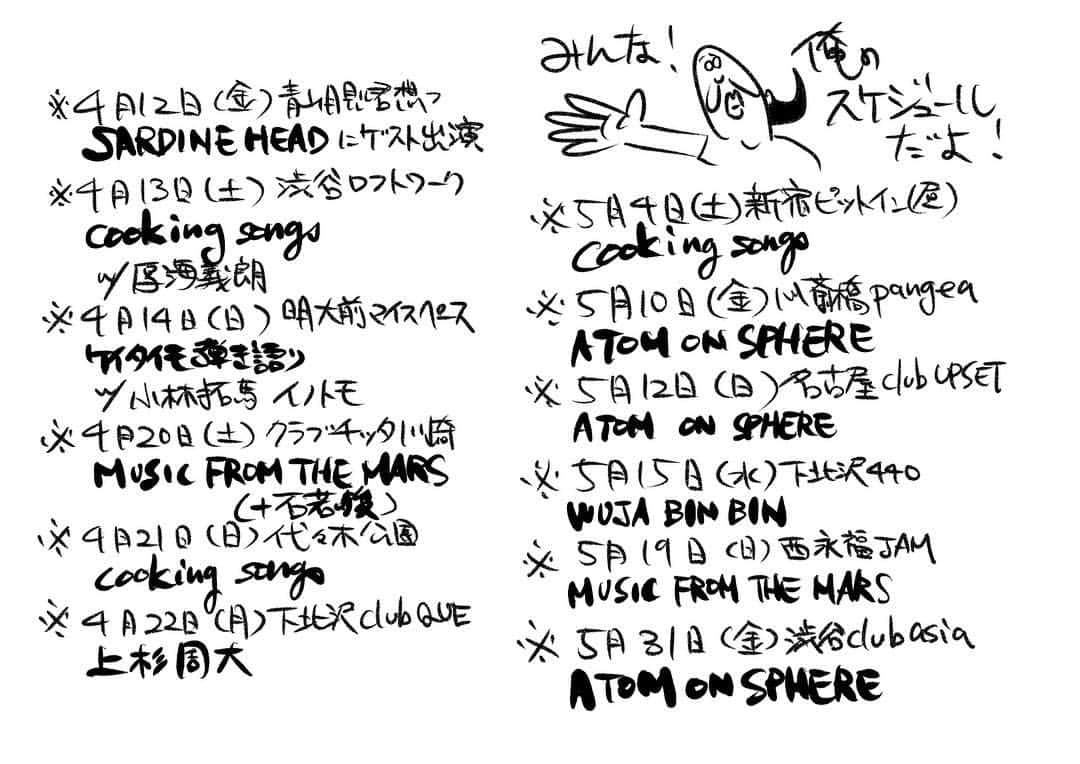 みんな!
俺の
スケジュール
だよ!
※4月12日(金)青山月見ル君想フ
SARDINE HEADにゲスト出演
※4月13日(土)渋谷ロフトワーク
cooking songs
w/厚海義朗
※4月14日(日)明大前マイスペース
ケイタイモ弾き語り
w/小林拓馬 イノトモ
※4月20日(土)クラブチッタ川崎
MUSIC FROM THE MARS
(+石若駿)
※4月21日(日)代々木公園
cooking songs
※4月22日(月)下北沢club QUE
上杉周大
※5月4日(土)新宿ピットイン(昼)
cooking songs
※5月10日(金)心斎橋pangea
ATOM ON SPHERE
※5月12日(日)名古屋club UPSET
ATOM ON SPHERE
※5月15日(水)下北沢440
WUJA BIN BIN
※5月19日(日)西永福JAM
MUSIC FROM THE MARS
※5月31日(金)渋谷club asia
ATOM ON SPHERE